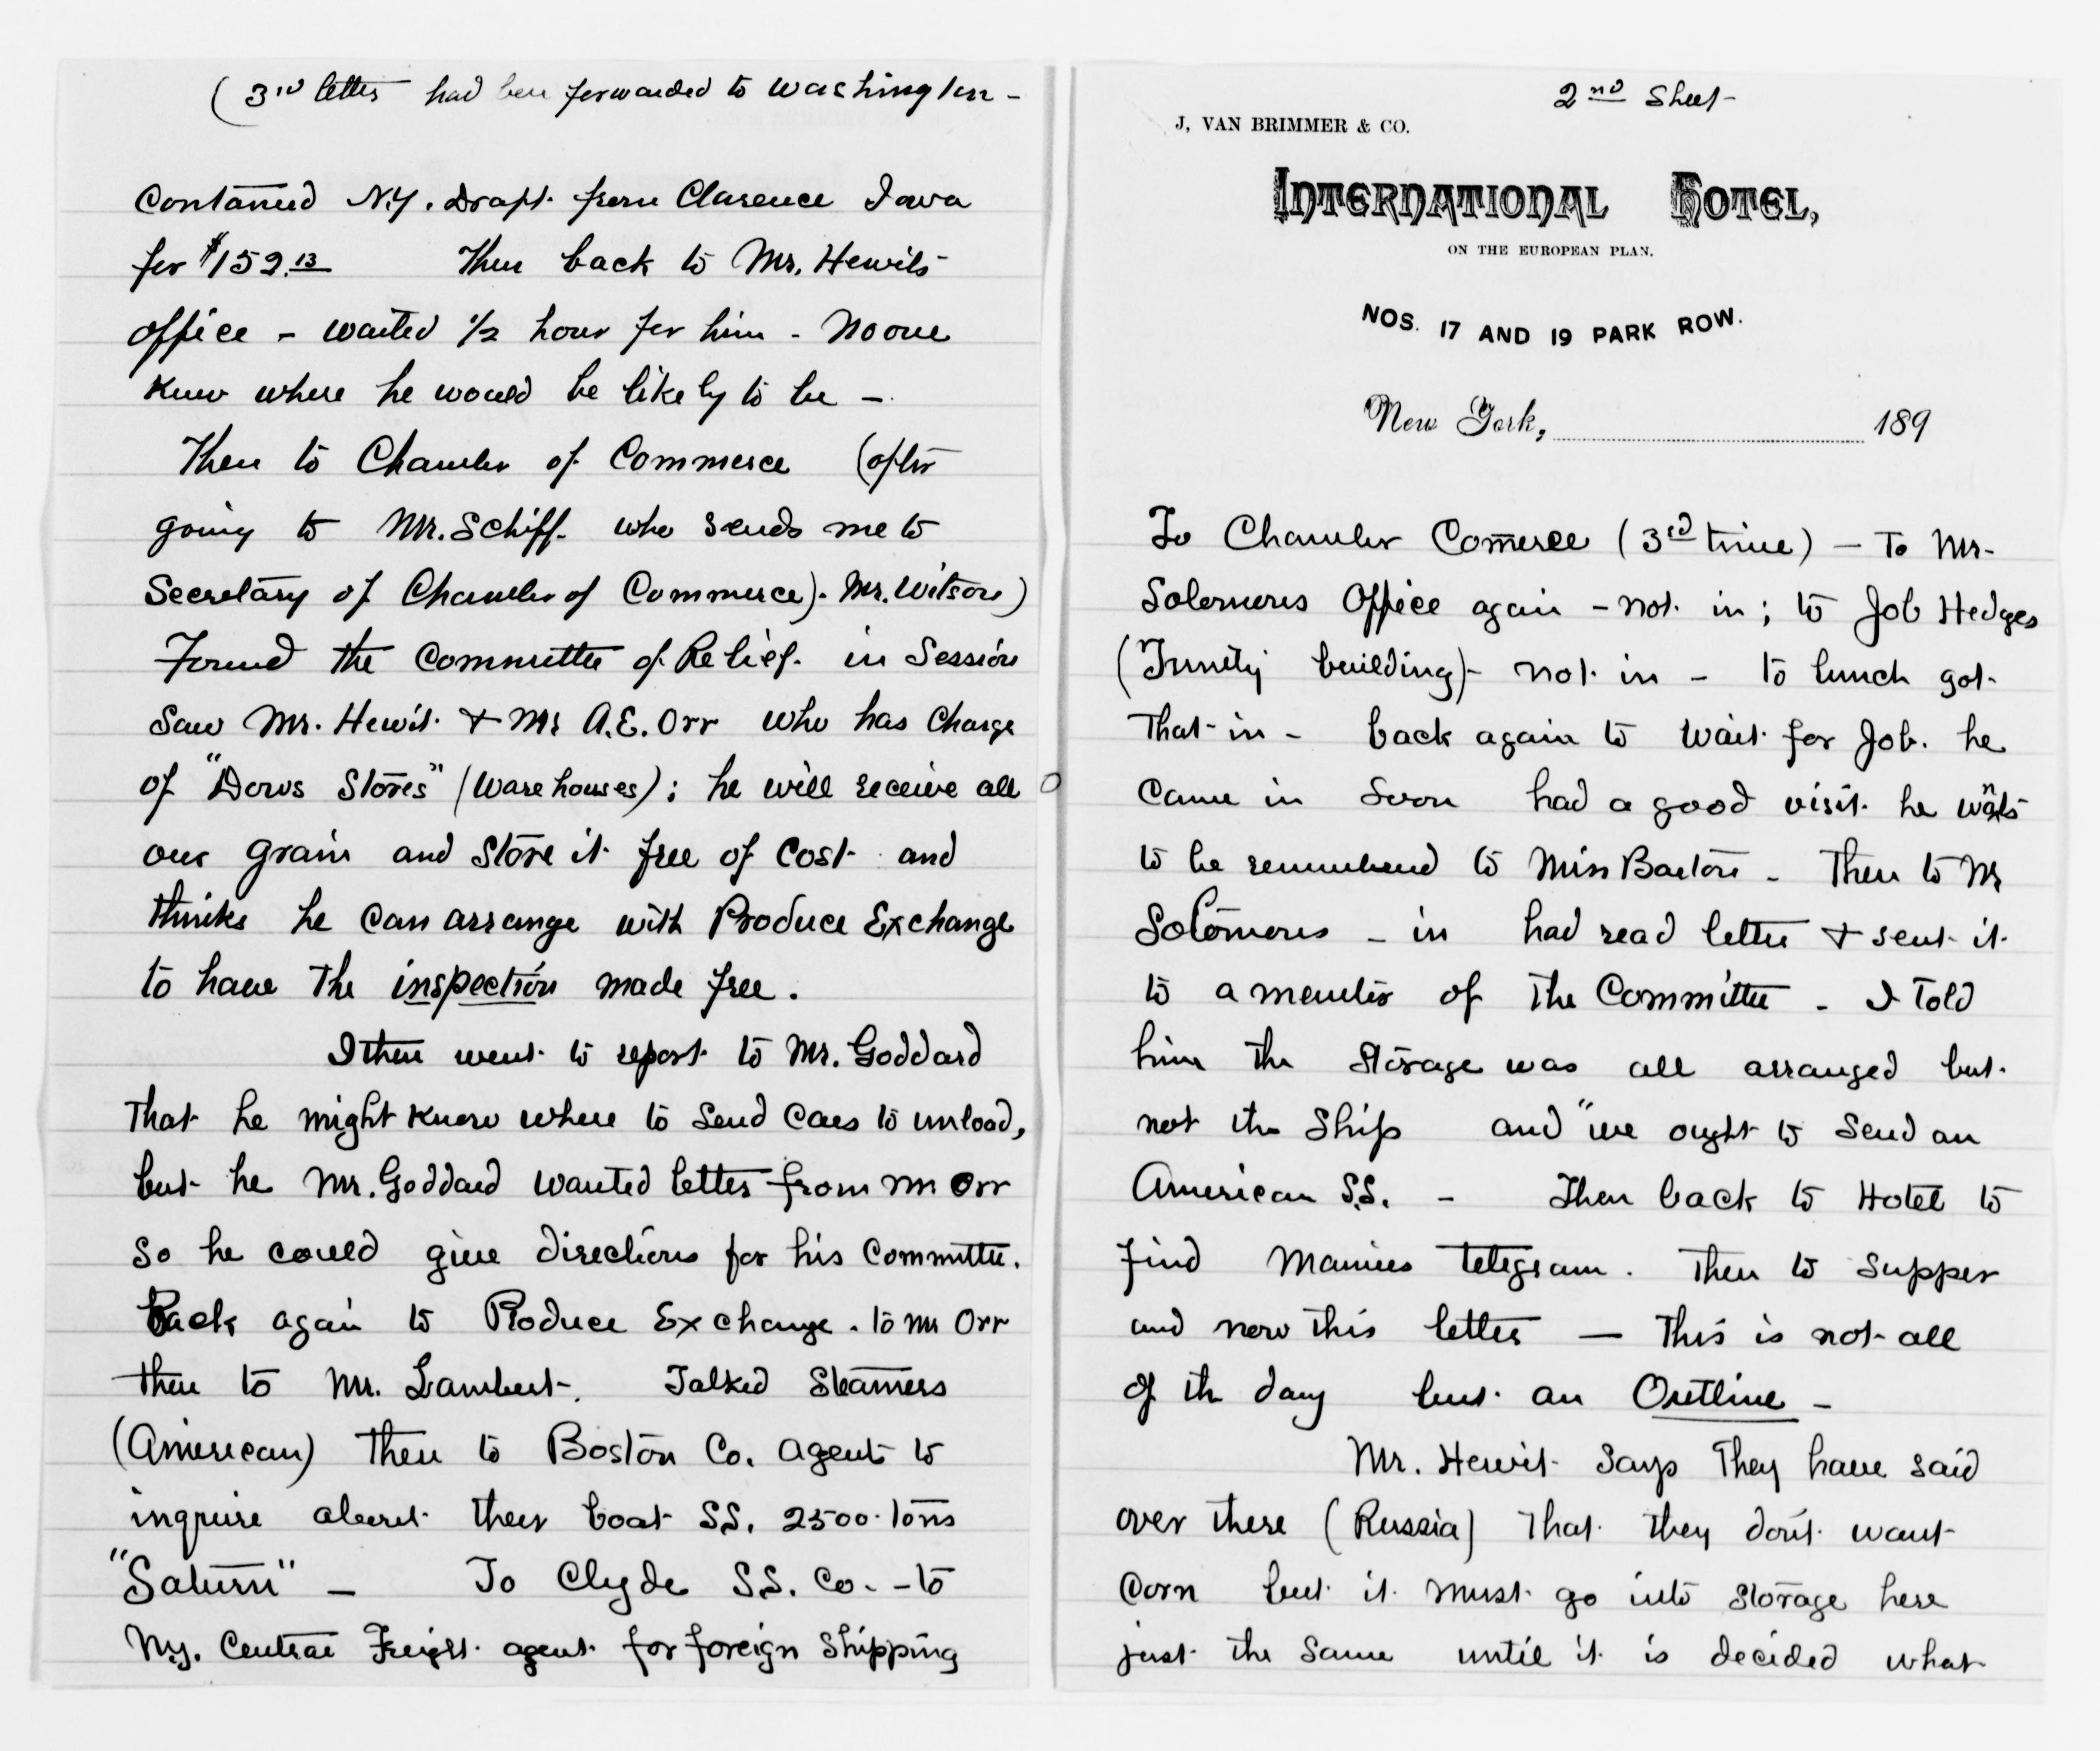 (3rd letter had been forwarded to Washington -
Contained N.Y. Draft from Clarence Iowa
for $152.13 Then back to Mr. Hewits
office - waited 1/2 hour for him - No one
knew where he would be likely to be -
Then to Chamber of Commerce (after
going to Mr. Schiff who sends me to
Secretary of Chamber of Commerce). Mr. Wilson)
Found the Committee of Relief in Session
Saw Mr. Hewit & Mr A.E. Orr who has charge
of "Dows Stores" (Warehouses); he will receive all
our grain and store it free of cost and
thinks he can arrange with Produce Exchange
to have the inspection made free.
I then went to report to Mr. Goddard
that he might know where to send cars to unload,
but he Mr. Goddard wanted letter from Mr Orr
so he could give directions for his Committee.
Back again to Produce Exchange. to Mr Orr
then to Mr. Lambert. Talked Steamers
(American) then to Boston Co. agent to
inquire about their boat SS. 2500 tons
"Saturn" - To Clyde S.S. Co. - to
N.Y. Central Freight agent for foreign Shipping
2nd Sheet
J. VAN BRIMMER & CO.
INTERNATIONAL HOTEL,
ON THE EUROPEAN PLAN.
NOS. 17 AND 19 PARK ROW.
New York, 189
To Chamber Comerce (3rd time) - To Mr-
Solomons Office again - not in; to Job Hedges
(Trinity building) - not in - to lunch got
that in - back again to wait for Job. he
came in soon had a good visit he wants
to be remembered to Miss Barton - Then to Mr
Solomons - in had read letter & sent it
to a member of the Committee - I told
him the storage was all arranged but
not the Ship and "we ought to send an
American S.S. - Then back to Hotel to
find Mamies telegram. Then to supper
and now this letter — This is not all
of the day but an Outline -
Mr. Hewit says they have said
over there (Russia) that they don't want
corn but it must go into storage here
just the same until it is decided what